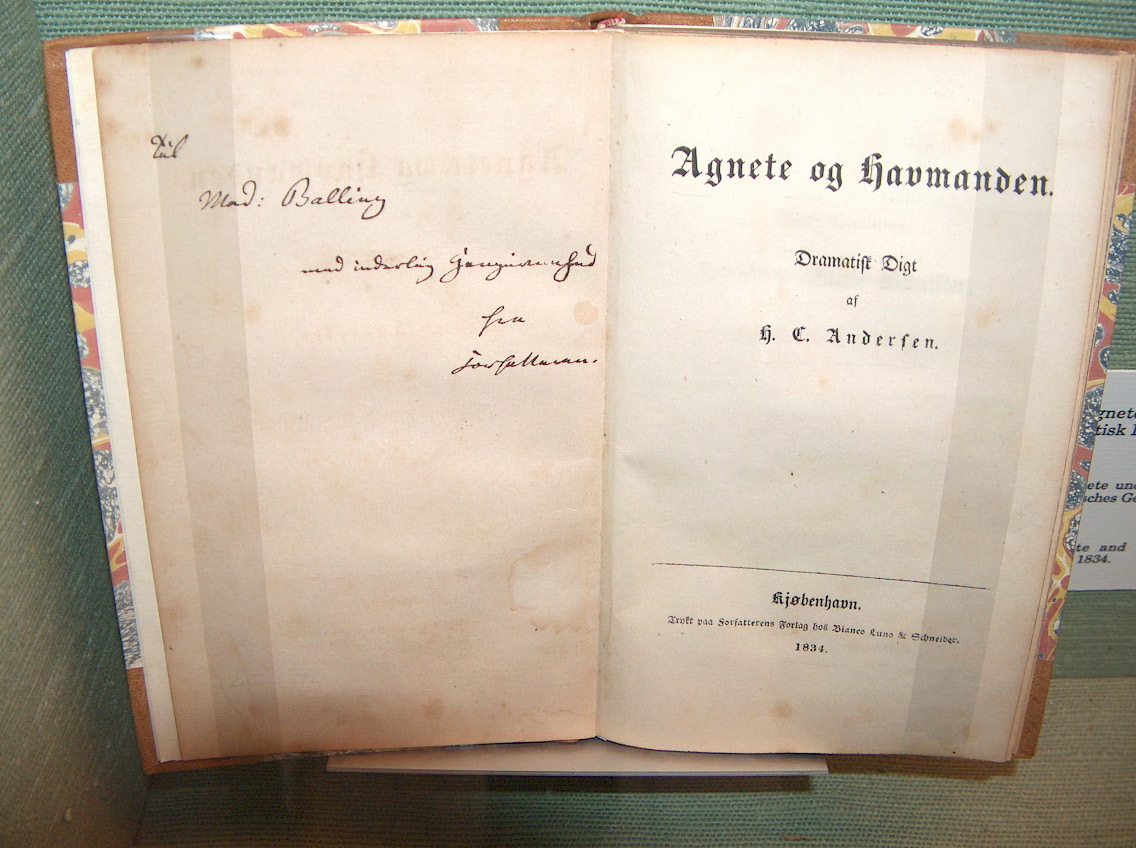 Til
Mad: Balling
med inderlig Hengivenhed
fra
Forfatteren.
Agnete og Havmanden.
Dramatisk Digt
af
H. C. Andersen.
Kjøbenhavn.
Trykt paa Forfatterens Forlag hos Bianco Luno & Schneider.
1834.
gnete
tisk
ete und
sches Ge
te and
1834.